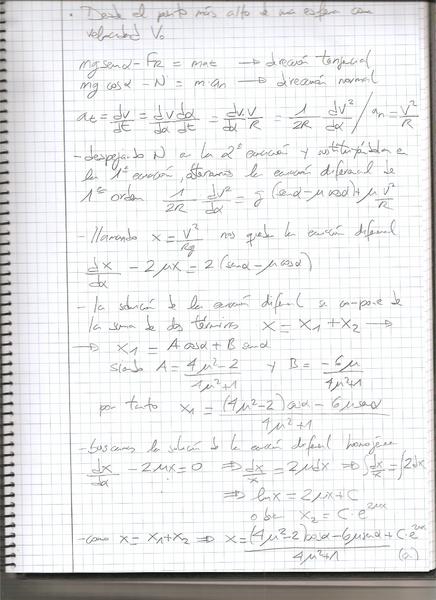 · Desde el punto más alto de una esfera con
velocidad V₀
mg senα - FR = mat → dirección tangencial
mg cosα - N = m an → dirección normal
at = dv/dt = dv/dα dα/dt = dv/dα · v/R = 1/2R dv²/dα / an = v²/R
- despejando N en la 2ª ecuación y sustituyéndola en
la 1ª ecuación, obtenemos la ecuación diferencial de
1er orden 1/2R dv²/dα = g (senα - μ cosα) + μ v²/R
- llamando x = v²/Rg nos queda la ecuación diferencial
dx/dα - 2μx = 2 (senα - μ cosα)
- la solución de la ecuación diferencial se compone de
la suma de dos términos x = x₁ + x₂ →
→ x₁ = A cosα + B senα
siendo A = 4μ²-2/4μ²+1 y B = -6μ/4μ²+1
por tanto x₁ = (4μ²-2)cosα - 6μ senα/4μ²+1
- buscamos la solución de la ecuación diferencial homogénea
dx/dα - 2μx = 0 ⇒ dx/x = 2μdα ⇒ ∫dx/x = ∫2dα
⇒ lnx = 2μα + C
x₂ = C · e^2μα
- como x = x₁ + x₂ ⇒ x = (4μ²-2)cosα - 6μ senα/4μ²+1 + C · e^2μα
(a)